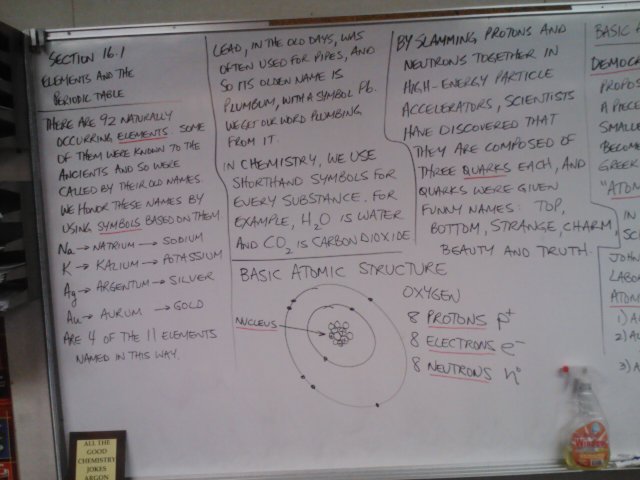 SECTION 16.1
ELEMENTS AND THE
PERIODIC TABLE
THERE ARE 92 NATURALLY
OCCURRING ELEMENTS. SOME
OF THEM WERE KNOWN TO THE
ANCIENTS AND SO WERE
CALLED BY THEIR OLD NAMES.
WE HONOR THESE NAMES BY
USING SYMBOLS BASED ON THEM
Na → NATRIUM → SODIUM
K → KALIUM → POTASSIUM
Ag → ARGENTUM → SILVER
Au → AURUM → GOLD
ARE 4 OF THE 11 ELEMENTS
NAMED IN THIS WAY.
LEAD, IN THE OLD DAYS, WAS
OFTEN USED FOR PIPES, AND
SO ITS OLDEN NAME IS
PLUMBUM, WITH A SYMBOL Pb.
WE GET OUR WORD PLUMBING
FROM IT.
IN CHEMISTRY, WE USE
SHORTHAND SYMBOLS FOR
EVERY SUBSTANCE. FOR
EXAMPLE, H₂O IS WATER
AND CO₂ IS CARBON DIOXIDE
BY SLAMMING PROTONS AND
NEUTRONS TOGETHER IN
HIGH-ENERGY PARTICLE
ACCELERATORS, SCIENTISTS
HAVE DISCOVERED THAT
THEY ARE COMPOSED OF
THREE QUARKS EACH, AND
QUARKS WERE GIVEN
FUNNY NAMES: TOP,
BOTTOM, STRANGE, CHARM,
BEAUTY AND TRUTH.
BASIC ATOMIC STRUCTURE
NUCLEUS
OXYGEN
8 PROTONS p⁺
8 ELECTRONS e⁻
8 NEUTRONS n⁰
BASIC
DEMOC
PROPOS
A PIECE
SMALLE
BECOME
GREEK
"ATOM
IN
SC
JOHN
LABOR
ATOM
1) A
2) A
3) A
ALL THE
GOOD
CHEMISTRY
JOKES
ARGON